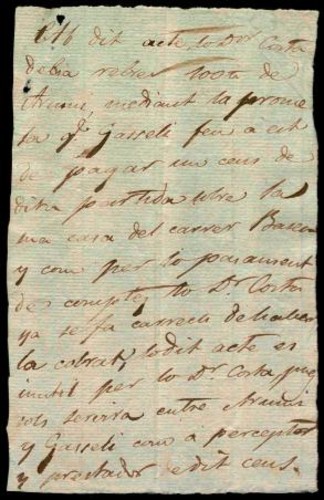 dit acte lo Dor Costa
debia rebrer 100 de
Arumi mediant la prome
sa qe Gasseli feu á est
de pagar un cens de
dita partida sobre la
ma casa del carrer
y com per lo pasament
de comptes lo Dr Costa
ya se fa carrech de haber
la cobrat, lo dit acte es
inutil per lo Dr Costa puig
sols servira entre Arumi
y Gasseli com á perceptor
y prestador de dit cens.